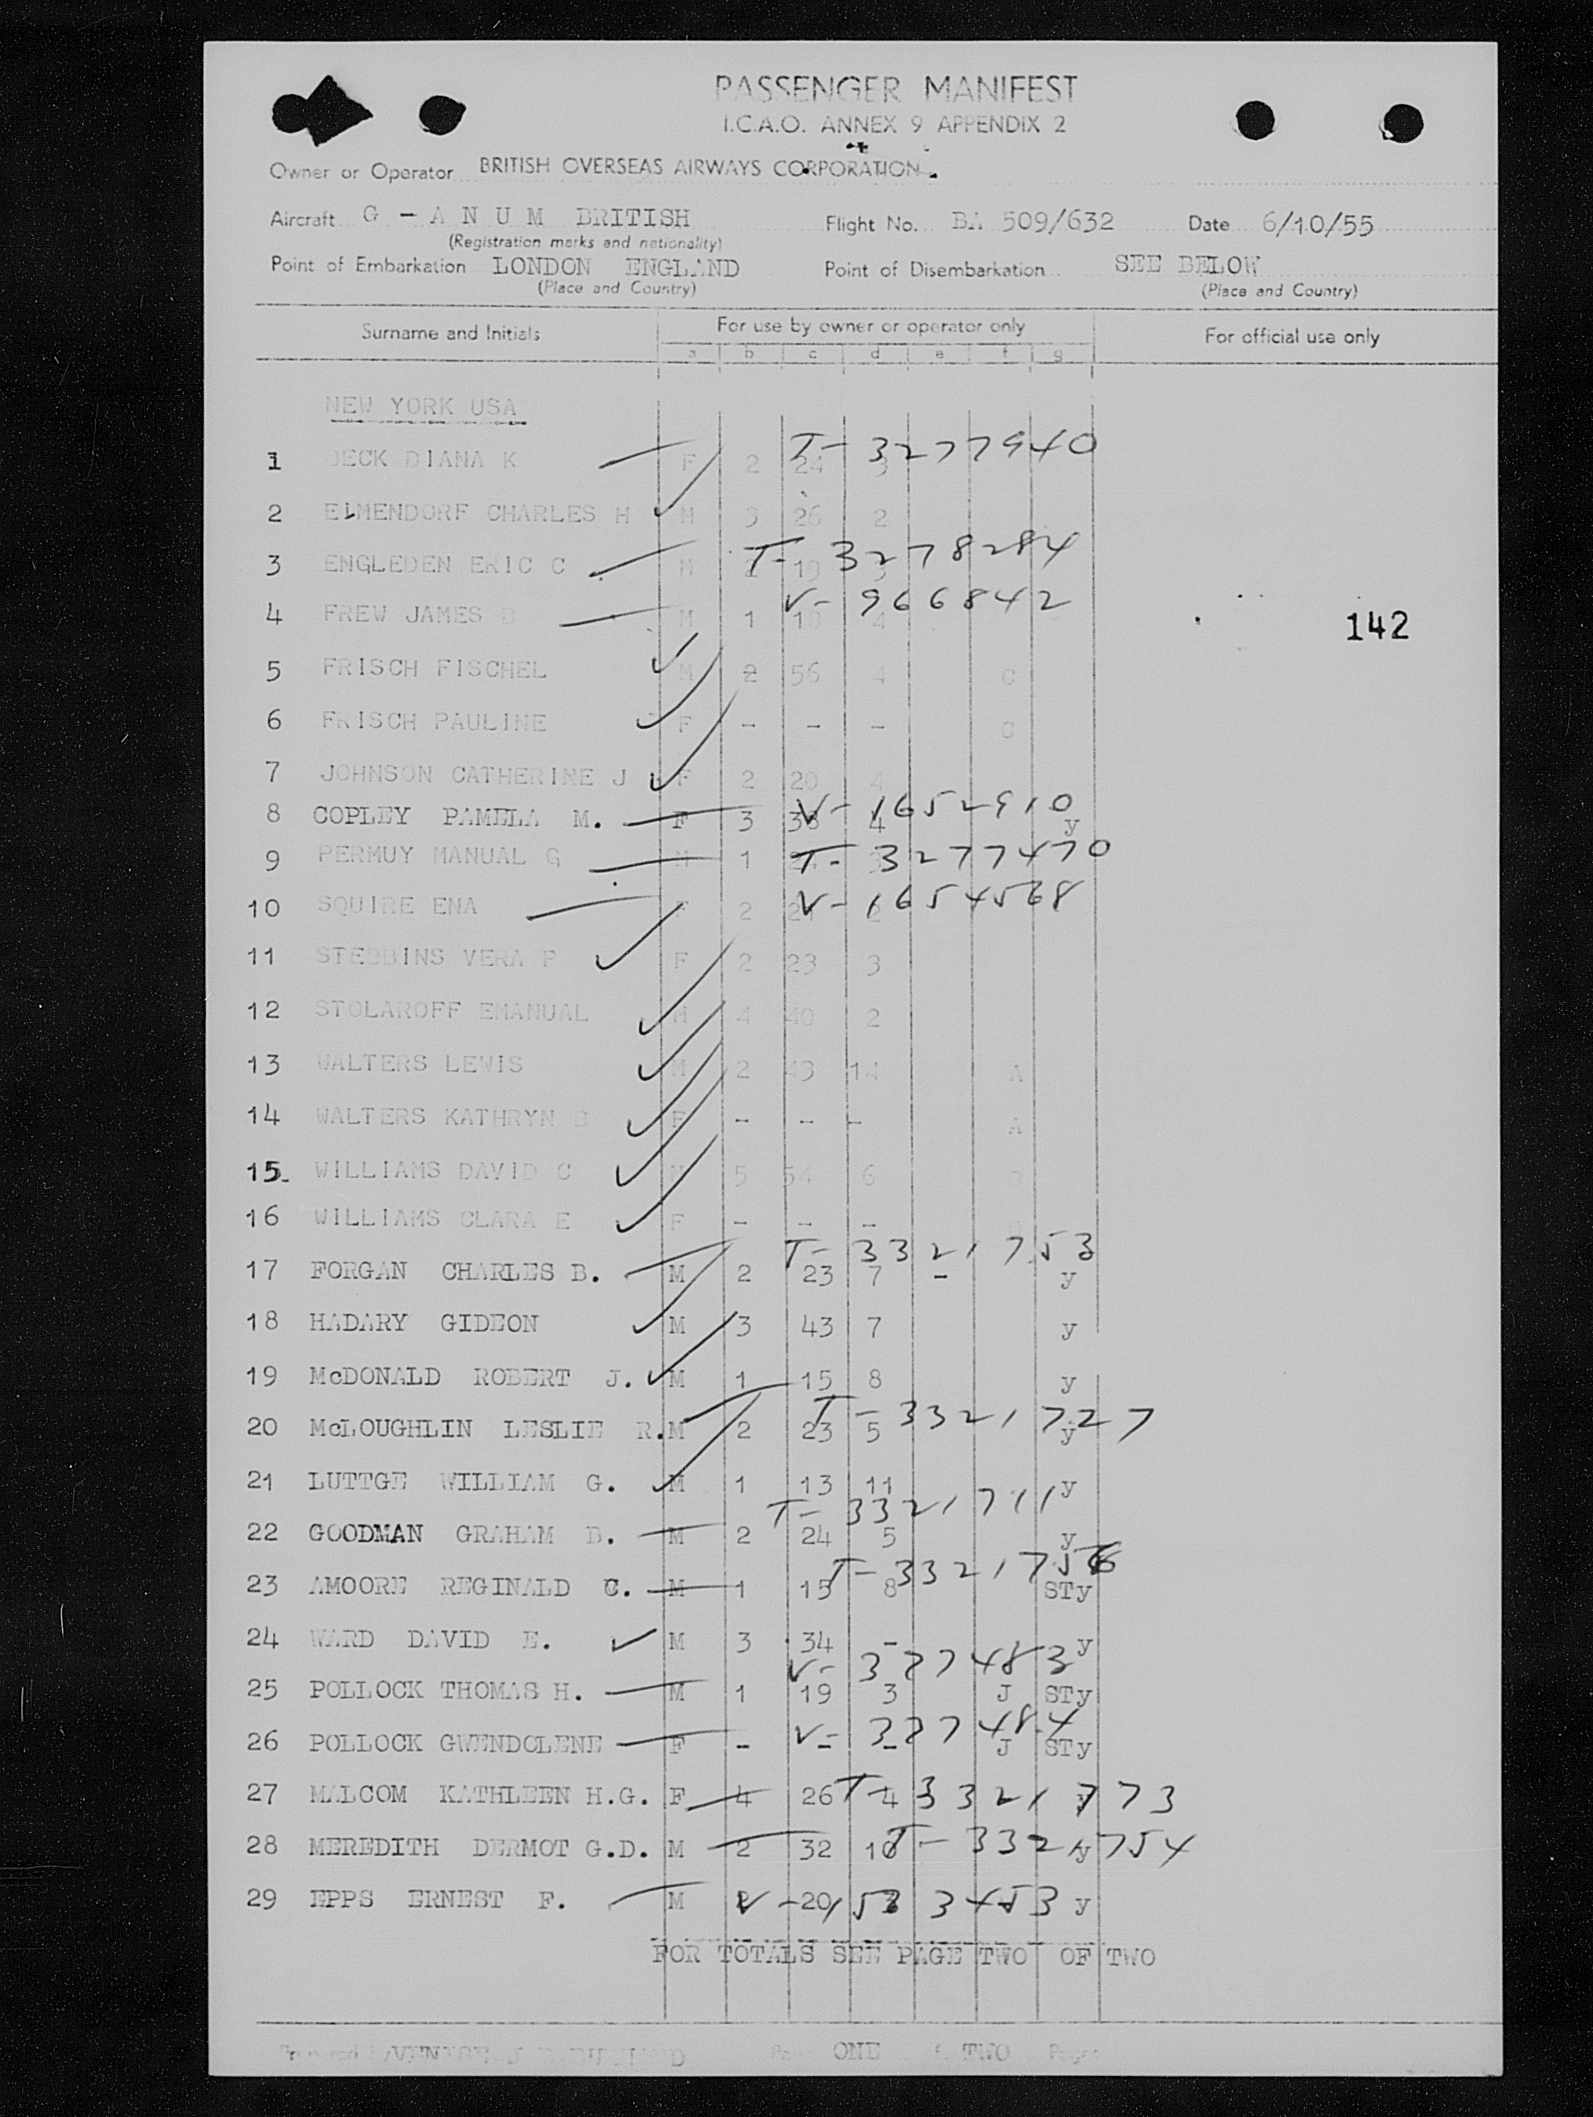 PASSENGER MANIFEST
I.C.A.O. ANNEX 9 APPENDIX 2
Owner or Operator BRITISH OVERSEAS AIRWAYS CORPORATION.
Aircraft G - A N U M BRITISH Flight No. BA 509/632 Date 6/10/55
(Registration marks and nationality)
Point of Embarkation LONDON ENGLAND Point of Disembarkation SEE BELOW
(Place and Country) (Place and Country)
Surname and Initials For use by owner or operator only For official use only
a b c d e f g
NEW YORK USA
T- 3277940
1 DECK DIANA K F 2 24 3
2 ELMENDORF CHARLES H M 3 26 2
T- 3278284
3 ENGLEDEN ERIC C M 19
V- 966842
4 FREW JAMES M 1 4
142
5 FRISCH FISCHEL M 2 56 4 C
6 FRISCH PAULINE F - - - C
7 JOHNSON CATHERINE J F 2 20 4
V-1652910
8 COPLEY PAMELA M. F 3 38 4 y
9 PERMUY MANUAL G M 1 T- 3277470
10 SQUIRE ENA F 2 V-1654568
11 STEBBINS VERA F 2 23 3
12 STOLAROFF EMANUAL M 4 40 2
13 WALTERS LEWIS M 2 43 14 A
14 WALTERS KATHRYN B F - - - A
15 WILLIAMS DAVID C M 5 54 6
16 WILLIAMS CLARA E F - - -
T- 3321753
17 FORGAN CHARLES B. M 2 23 7 - y
18 HADARY GIDEON M 3 43 7 y
19 McDONALD ROBERT J. M 1 15 8 y
T-3321727
20 McLOUGHLIN LESLIE R. M 2 23 5 y
21 LUTTGE WILLIAM G. M 1 13 11 y
T- 3321711
22 GOODMAN GRAHAM B. M 2 24 5 y
T-3321756
23 AMOORE REGINALD C. M 1 15 8 STy
24 WARD DAVID E. M 3 34 - y
V- 327483
25 POLLOCK THOMAS H. M 1 19 3 J STy
V- 327484
26 POLLOCK GWENDOLENE F - - - J STy
27 MALCOM KATHLEEN H.G. F 4 26 4 T-3321773
28 MEREDITH DERMOT G.D. M 2 32 10 y T-3321754
29 EPPS ERNEST F. M 20 y V-1533453
FOR TOTALS SEE PAGE TWO OF TWO
ONE TWO